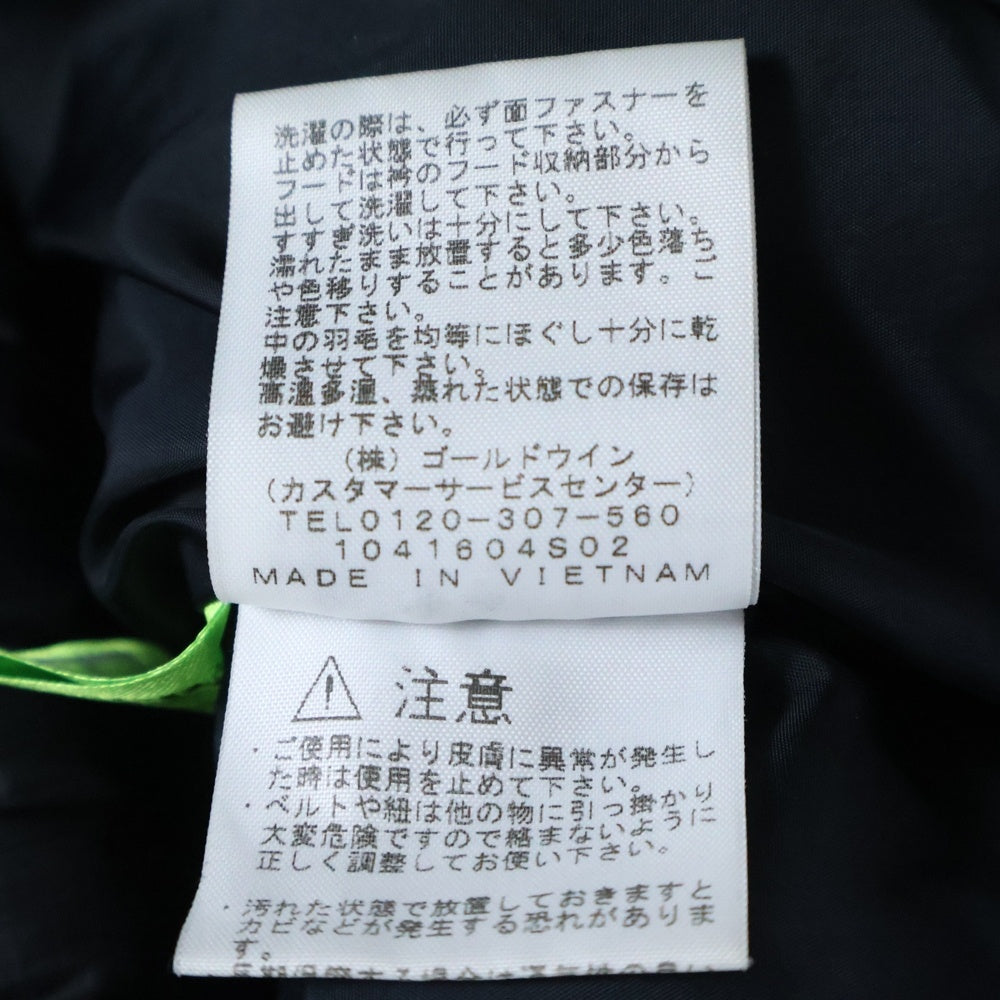 洗濯の際は、必ず面ファスナーを
止めた状態で行って下さい。
フードは衿のフード収納部分から
出して洗濯して下さい。
すすぎ洗いは十分にして下さい。
濡れたまま放置すると多少色落ち
や色移りすることがあります。ご
注意下さい。
中の羽毛を均等にほぐし十分に乾
燥させて下さい。
高温多湿、蒸れた状態での保存は
お避け下さい。
(株)ゴールドウイン
(カスタマーサービスセンター)
TEL0120-307-560
1041604S02
MADE IN VIETNAM
注意
・ご使用により皮膚に異常が発生し
た時は使用を止めて下さい。
・ベルトや紐は他の物に引っ掛かり
大変危険ですので絡まないように
正しく調整してお使い下さい。
・汚れた状態で放置しておきますと
カビなどが発生する恐れがありま
す。